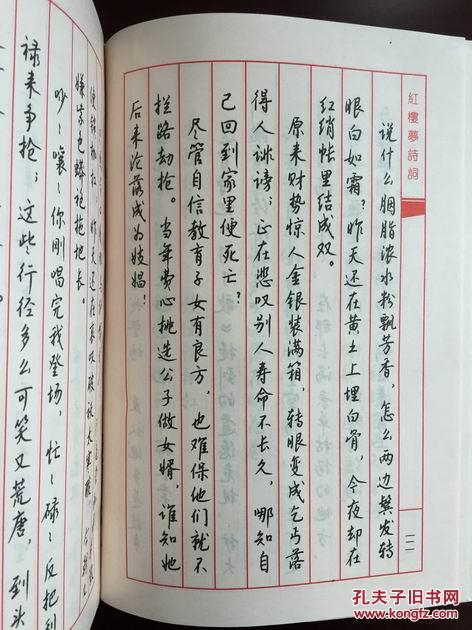 紅樓夢詩詞
说什么胭脂浓水粉飘芳香，怎么两边鬓发转
眼白如霜？昨天还在黄土上埋白骨，今夜却在
红绡帐里结成双。
原来财势惊人金银装满箱，转眼变成乞丐落
得人诽谤；正在悲叹别人寿命不长久，哪知自
己回到家里便死亡？
尽管自信教育子女有良方，也难保他们就不
拦路劫抢。当年费心挑选公子做女婿，谁知她
后来沦落成为妓娼！
昨天还在哀叹破袄太寒
嫌紫色蟒袍拖把长。
吵〻嚷〻你刚唱完我登场，忙〻碌〻反把别
禄来争抢；这些行径多么可笑又荒唐，到头
孔夫子旧书网